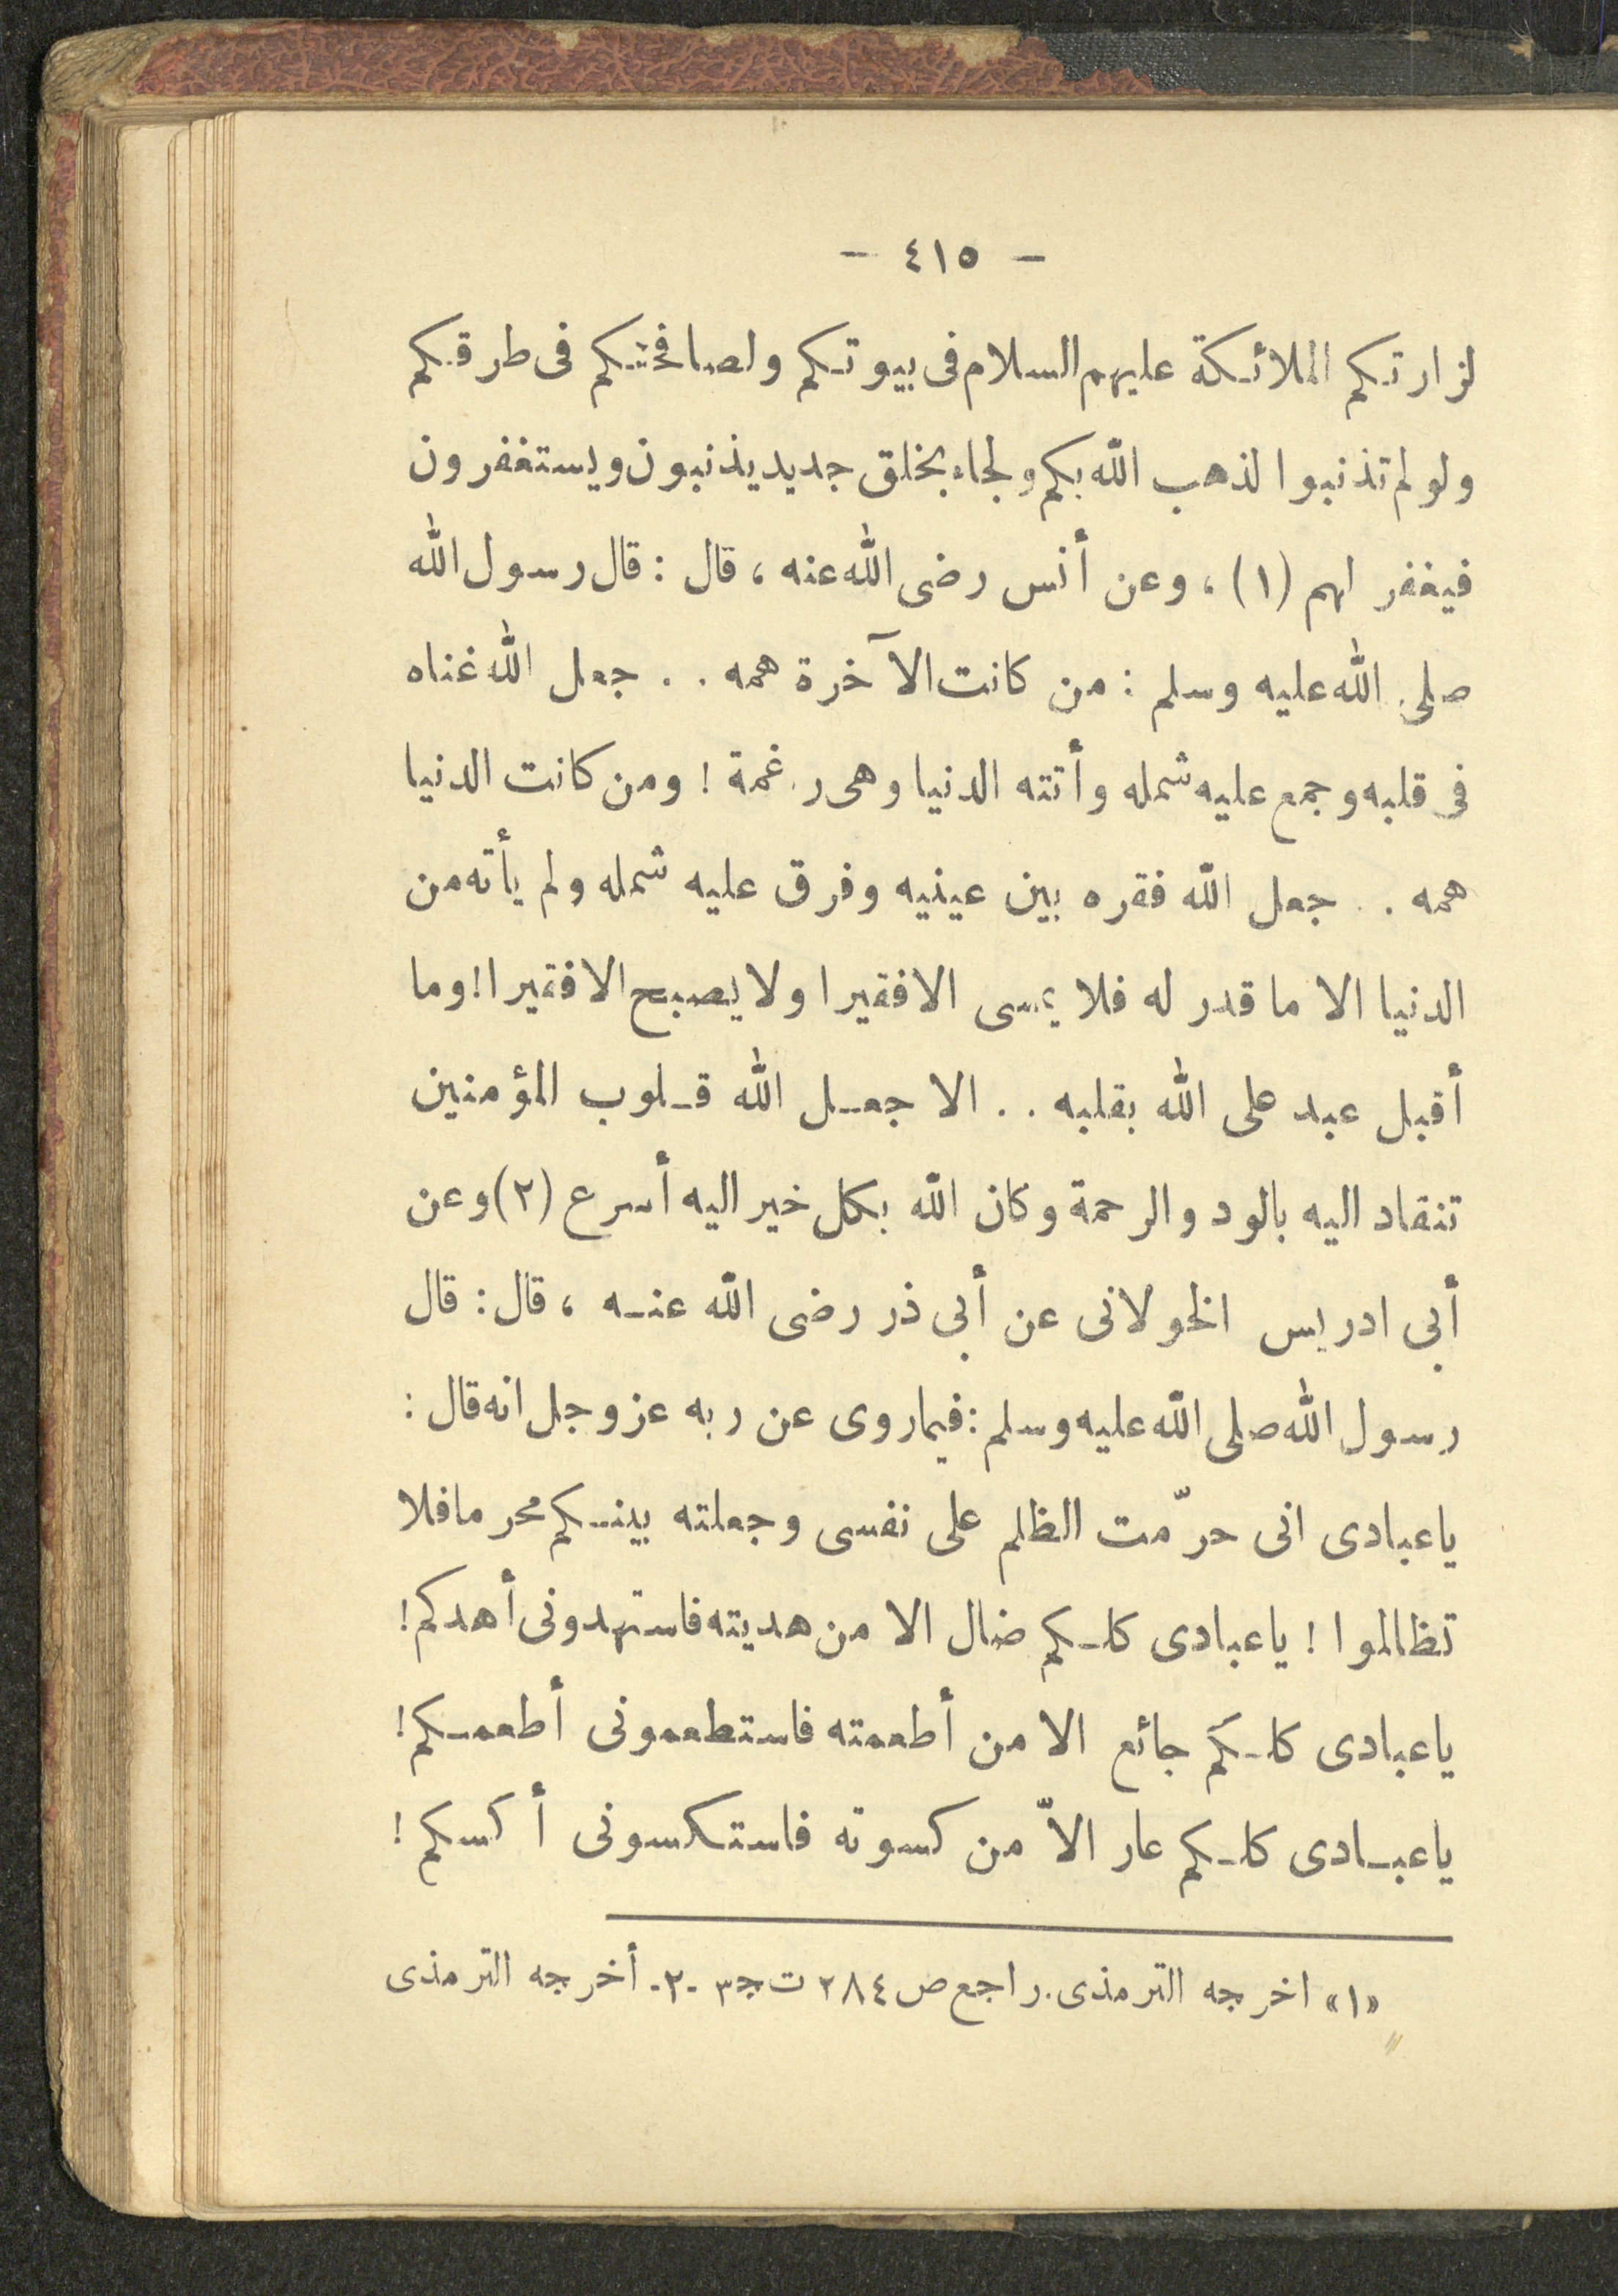 — ٤١٥ —
لزارتكم الملائكة عليهم السلام فى بيوتكم ولصافحتكم فى طرقكم
ولو لم تذنبوا لذهب الله بكم ولجاء بخلق جديد يذنبون ويستغفرون
فيغفر لهم (١) ، وعن أنس رضى الله عنه ، قال : قال رسول الله
صلى الله عليه وسلم : من كانت الآخرة همه . . جعل الله غناه
فى قلبه وجمع عليه شمله وأتته الدنيا وهى رغمة ! ومن كانت الدنيا
همه . . جعل الله فقره بين عينيه وفرق عليه شمله ولم يأته من
الدنيا الا ما قدر له فلا يمسى الا فقيرا ولا يصبح الا فقيرا ! وما
أقبل عبد على الله بقلبه . . الا جعل الله قلوب المؤمنين
تنقاد اليه بالود والرحمة وكان الله بكل خير اليه أسرع (٢) وعن
أبى ادريس الخولانى عن أبى ذر رضى الله عنه ، قال : قال
رسول الله صلى الله عليه وسلم : فيما روى عن ربه عز وجل انه قال :
ياعبادى انى حرّمت الظلم على نفسى وجعلته بينكم محرما فلا
تظالموا ! ياعبادى كلكم ضال الا من هديته فاستهدونى أهدكم !
ياعبادى كلكم جائع الا من أطعمته فاستطعمونى أطعمكم !
ياعبادى كلكم عار الاّ من كسوته فاستكسونى أكسكم !
«١» اخرجه الترمذى . راجع ص ٢٨٤ ت ج ٣ -٢- أخرجه الترمذى